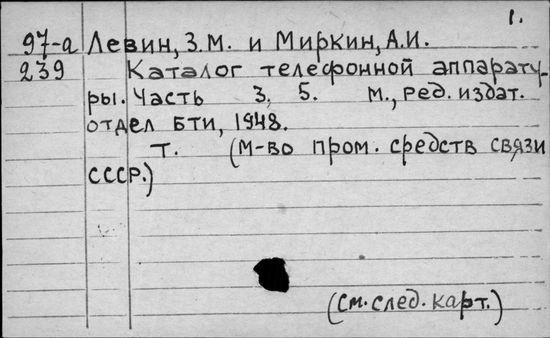 1.
97-а Левин, З.М. и Миркин, А.И.
239 Каталог телефонной аппарату-
ры. Часть 3, 5. М., ред. издат.
отдел БТИ, 1948.
т. (М-во пром. средств связи
СССР.)
(см. след. карт.)